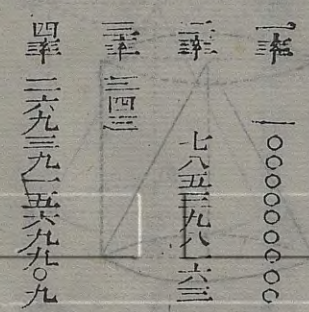 一率 一〇〇〇〇〇〇〇〇〇
二率 七八五三九八一六三
三率 三四三
四率 二六九三九一五六九九〇九